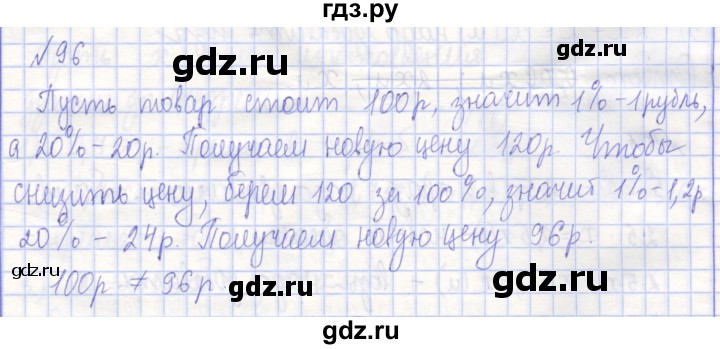 гдз.ру
№96
Пусть товар стоит 100р, значит 1%-1рубль,
а 20%-20р. Получаем новую цену 120р. Чтобы
снизить цену, берем 120 за 100%, значит 1%-1,2р
20% - 24р. Получаем новую цену 96р.
100р ≠ 96р
gdz.ru
gdz.ru
gdz.ru
gdz.ru
gdz.ru
gdz.ru
gdz.ru
gdz.ru
gdz.ru
gdz.ru